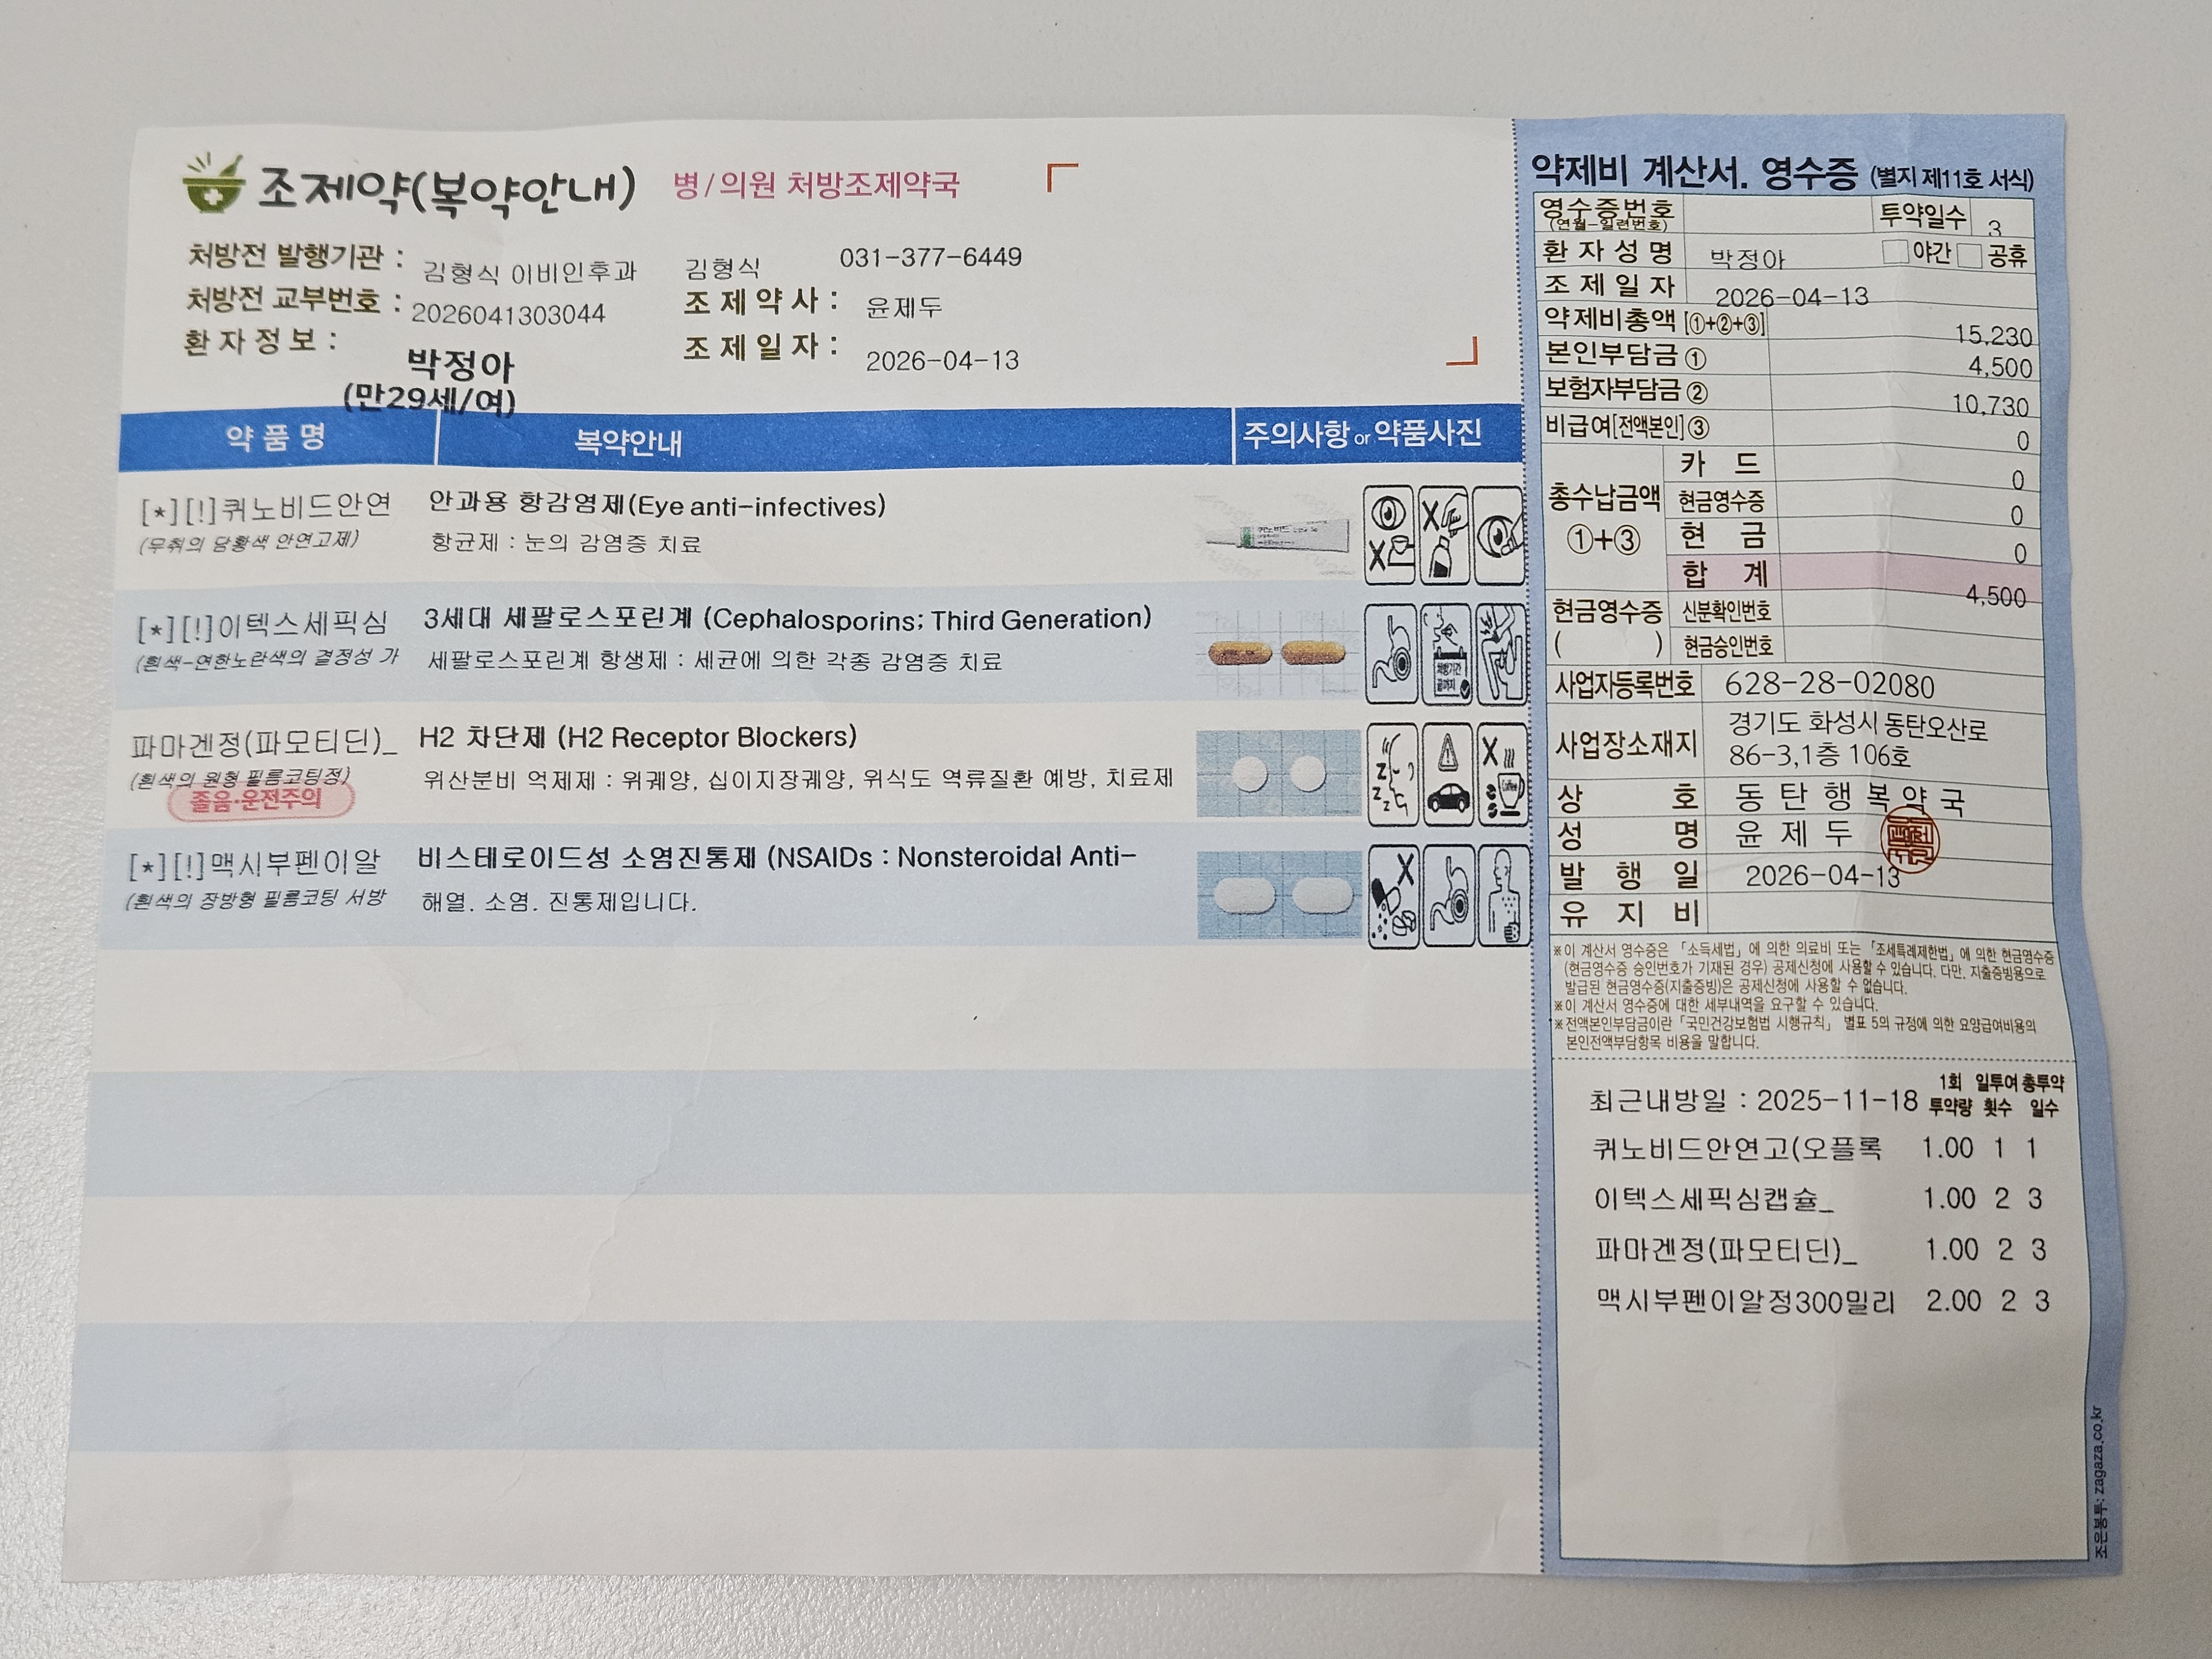 조제약(복약안내) 병/의원 처방조제약국
처방전 발행기관 : 김형식 이비인후과 김형식 031-377-6449
처방전 교부번호 : 2026041303044 조제약사 : 윤제두
환자정보 : 박정아 조제일자 : 2026-04-13
(만29세/여)
약품명 복약안내 주의사항 or 약품사진
[*][!]퀴노비드안연 안과용 항감염제(Eye anti-infectives)
(무취의 담황색 안연고제) 항균제 : 눈의 감염증 치료
[*][!]이텍스세픽심 3세대 세팔로스포린계 (Cephalosporins; Third Generation)
(흰색-연한노란색의 결정성 가 세팔로스포린계 항생제 : 세균에 의한 각종 감염증 치료
파마겐정(파모티딘)_ H2 차단제 (H2 Receptor Blockers)
(흰색의 원형 필름코팅정) 위산분비 억제제 : 위궤양, 십이지장궤양, 위식도 역류질환 예방, 치료제
졸음·운전주의
[*][!]맥시부펜이알 비스테로이드성 소염진통제 (NSAIDs : Nonsteroidal Anti-
(흰색의 장방형 필름코팅 서방 해열. 소염. 진통제입니다.
약제비 계산서. 영수증 (별지 제11호 서식)
영수증번호 투약일수 3
(연월-일련번호)
환자성명 박정아 야간 공휴
조제일자 2026-04-13
약제비총액 [①+②+③] 15,230
본인부담금 ① 4,500
보험자부담금 ② 10,730
비급여[전액본인] ③ 0
총수납금액 ①+③
카드 0
현금영수증 0
현금 0
합계 4,500
현금영수증 ( ) 신분확인번호
현금승인번호
사업자등록번호 628-28-02080
사업장소재지 경기도 화성시 동탄오산로
86-3,1층 106호
상호 동탄행복약국
성명 윤제두
발행일 2026-04-13
유지비
※이 계산서 영수증은 「소득세법」에 의한 의료비 또는 「조세특례제한법」에 의한 현금영수증
(현금영수증 승인번호가 기재된 경우) 공제신청에 사용할 수 있습니다. 다만, 지출증빙용으로
발급된 현금영수증(지출증빙)은 공제신청에 사용할 수 없습니다.
※이 계산서 영수증에 대한 세부내역을 요구할 수 있습니다.
※전액본인부담금이란 「국민건강보험법 시행규칙」 별표 5의 규정에 의한 요양급여비용의
본인전액부담항목 비용을 말합니다.
최근내방일 : 2025-11-18 1회 투약량 일투여 횟수 총투약 일수
퀴노비드안연고(오플록 1.00 1 1
이텍스세픽심캡슐_ 1.00 2 3
파마겐정(파모티딘)_ 1.00 2 3
맥시부펜이알정300밀리 2.00 2 3
조은봉투: zagaza.co.kr